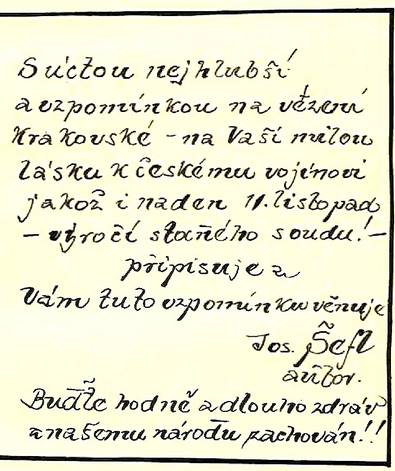 S úctou nejhlubší
a vzpomínkou na vězení
Krakovské – na Vaší milou
lásku k českému vojínovi
jakož i na den 11. listopad
– výročí staného soudu! –
připisuje a
Vám tuto vzpomínku věnuje
Jos. Šefl
autor.
Buďte hodně a dlouho zdráv
a našemu národu zachován!!